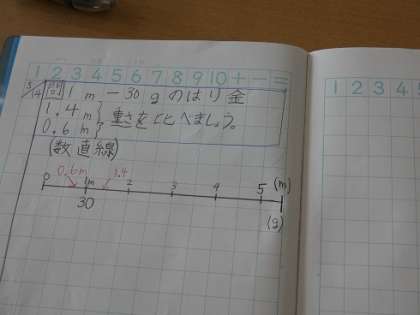 1 2 3 4 5 6 7 8 9 10 + - =
5/14 問 1m-30gのはり金
1.4m
0.6m 重さを比べましょう。
(数直線)
0.6m 1.4
0 1m 2 3 4 5 (m)
30 (g)
1 2 3 4 5